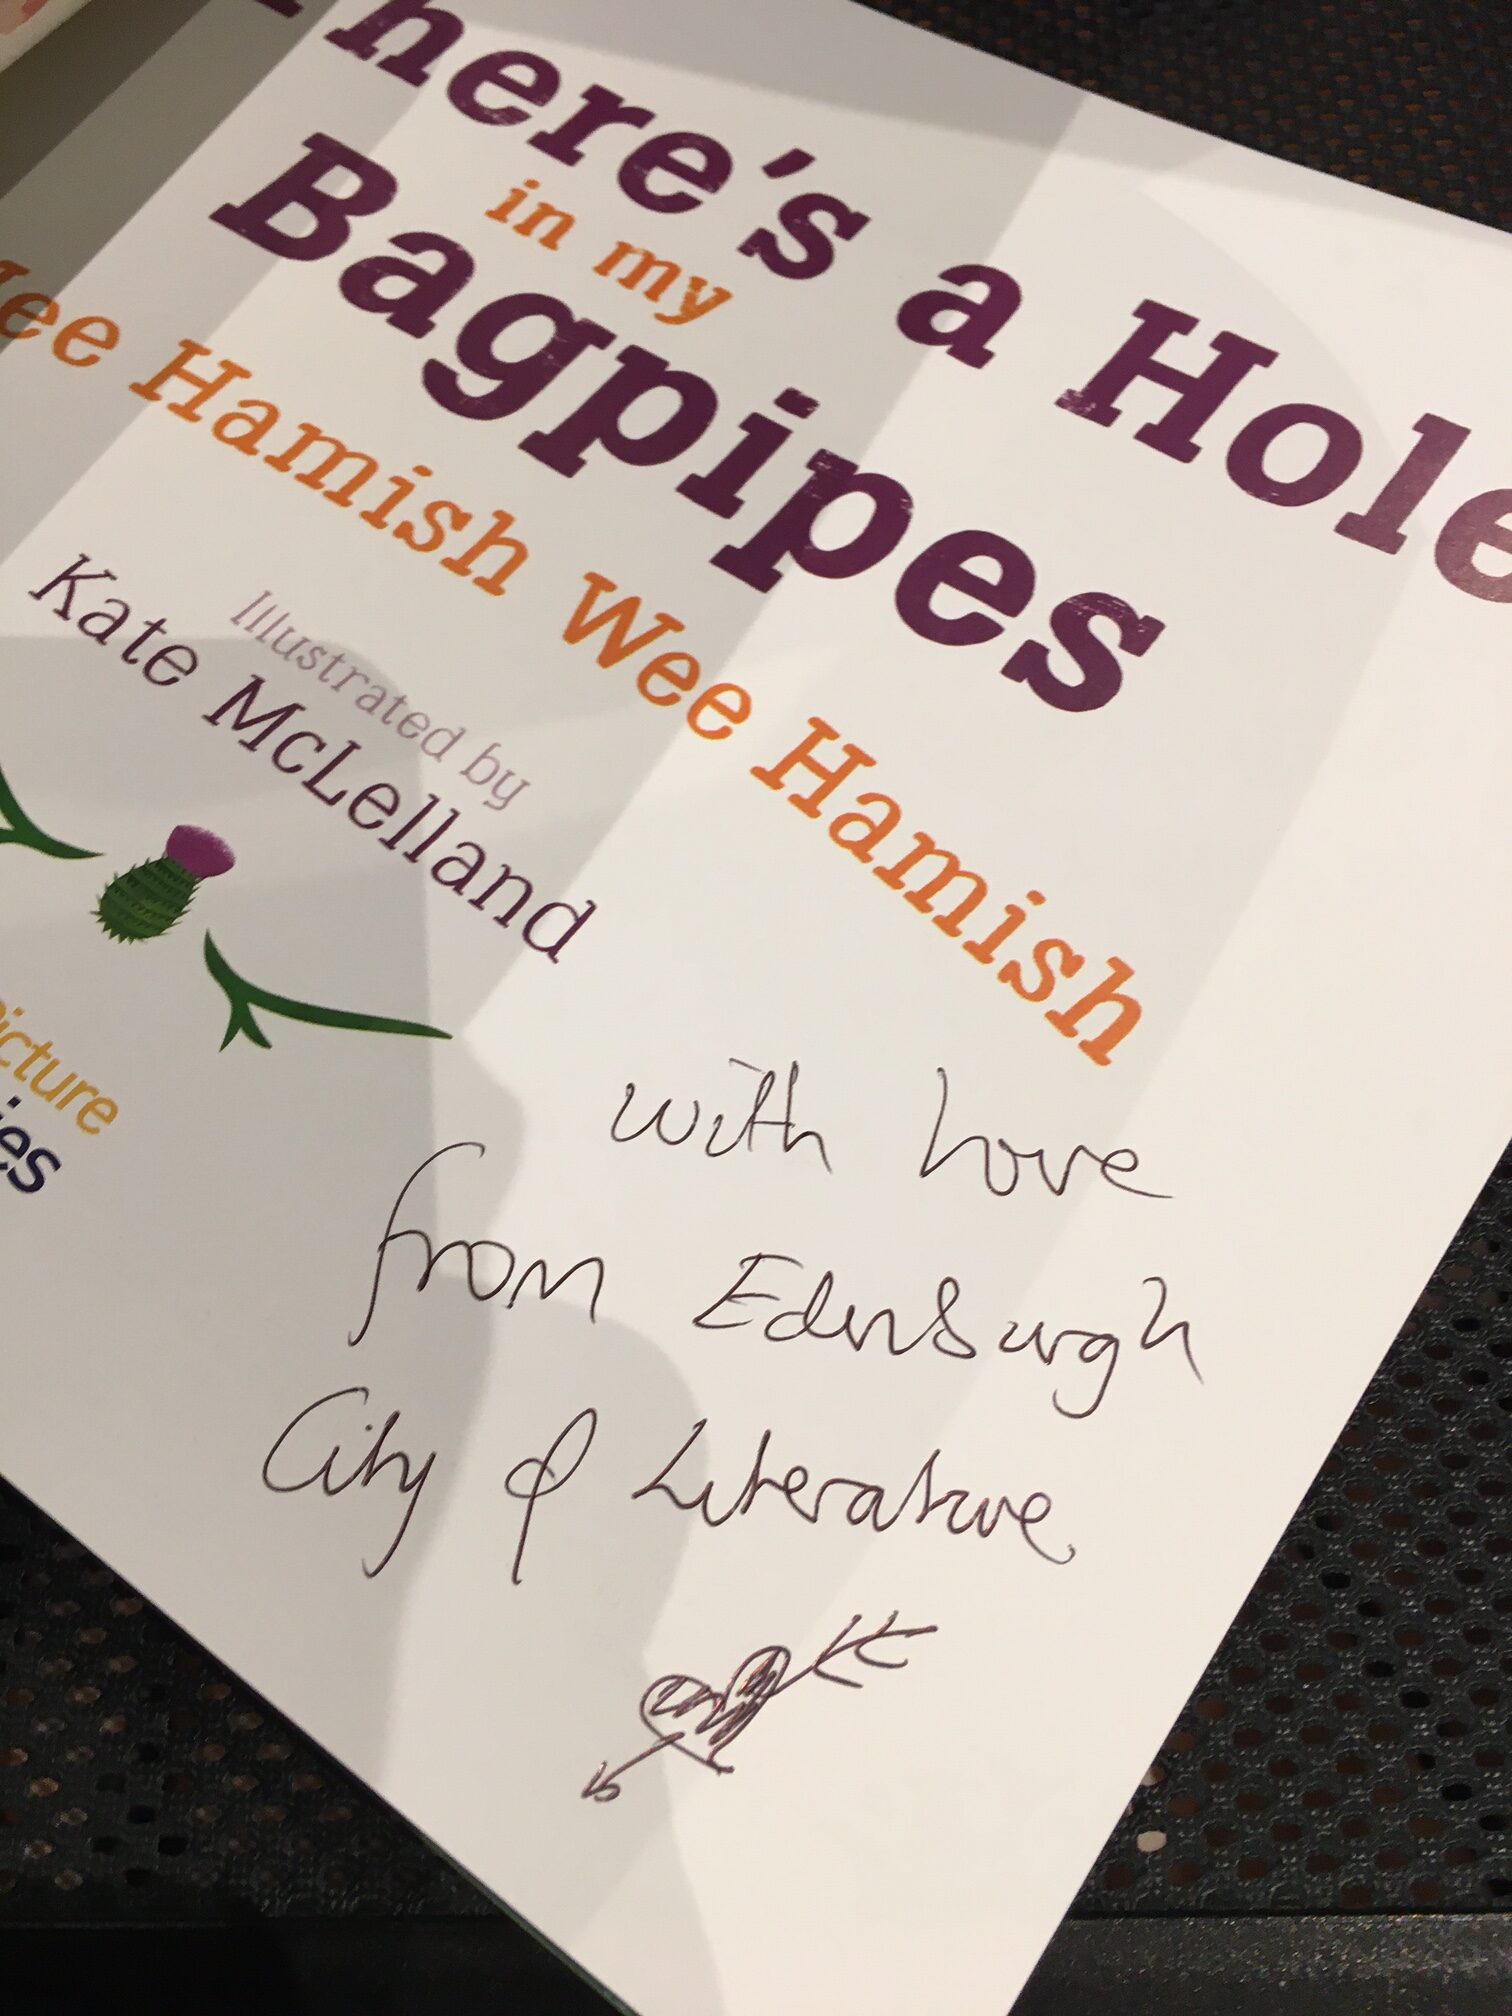 here's a Hole
in my
Bagpipes
ee Hamish Wee Hamish
Illustrated by
Kate McLelland
picture
ies
with love
from Edinburgh
City of Literature